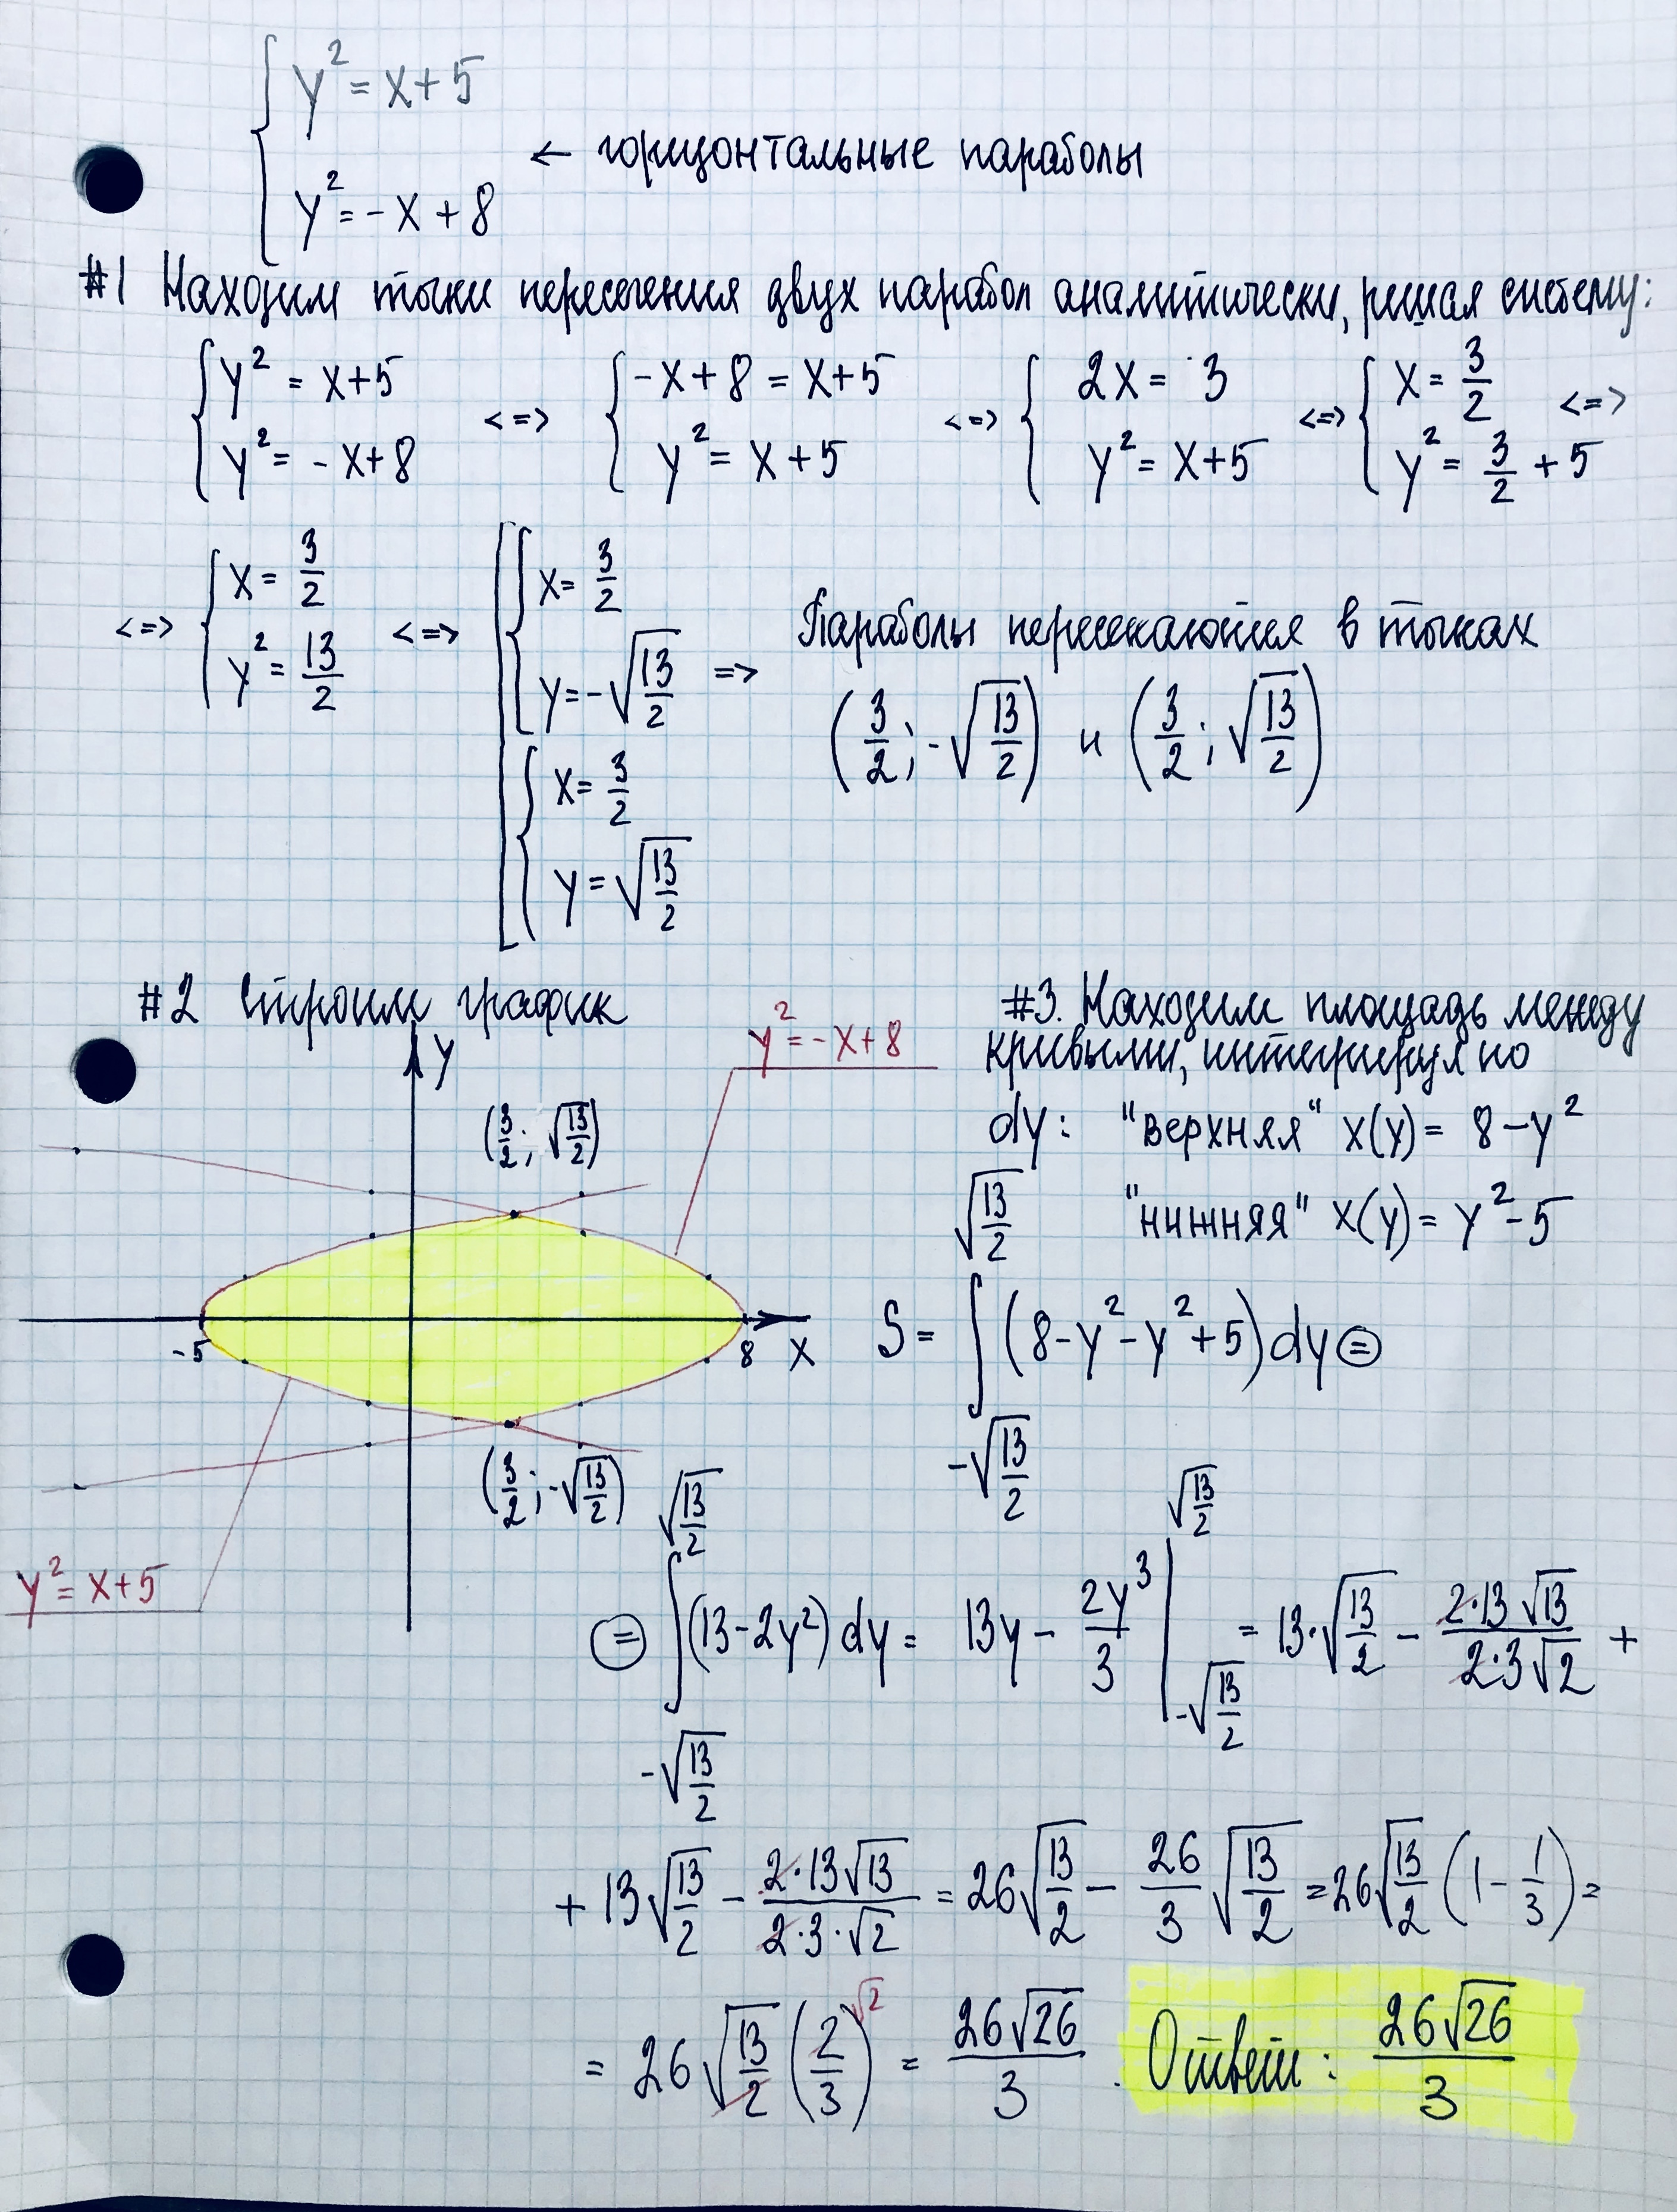 { y² = x+5
← горизонтальные параболы
y² = -x+8
#1 Находим точки пересечения двух парабол аналитически, решая систему:
{ y² = x+5 { -x+8 = x+5 { 2x = 3 { x = 3/2
y² = -x+8 <=> y² = x+5 <=> y² = x+5 <=> y² = 3/2 + 5 <=>
<=> { x = 3/2 ; y² = 13/2 <=> [ { x = 3/2 ; y = -√(13/2) => Параболы пересекаются в точках
{ x = 3/2 ; y = √(13/2) (3/2; -√(13/2)) и (3/2; √(13/2))
#2 Строим график
y² = -x+8
y
(3/2; √(13/2))
-5 8 x
(3/2; -√(13/2))
y² = x+5
#3. Находим площадь между
кривыми, интегрируя по
dy: "верхняя" x(y) = 8-y²
"нижняя" x(y) = y²-5
S = ∫_{-√(13/2)}^{√(13/2)} (8-y²-y²+5)dy =
= ∫_{-√(13/2)}^{√(13/2)} (13-2y²)dy = 13y - 2y³/3 |_{-√(13/2)}^{√(13/2)} = 13·√(13/2) - 2·13√13/(2·3√2) +
+ 13√(13/2) - 2·13√13/(2·3·√2) = 26√(13/2) - 26/3 √(13/2) = 26√(13/2) (1 - 1/3) =
= 26√(13/2) (2/3) √2 = 26√26/3 . Ответ: 26√26/3